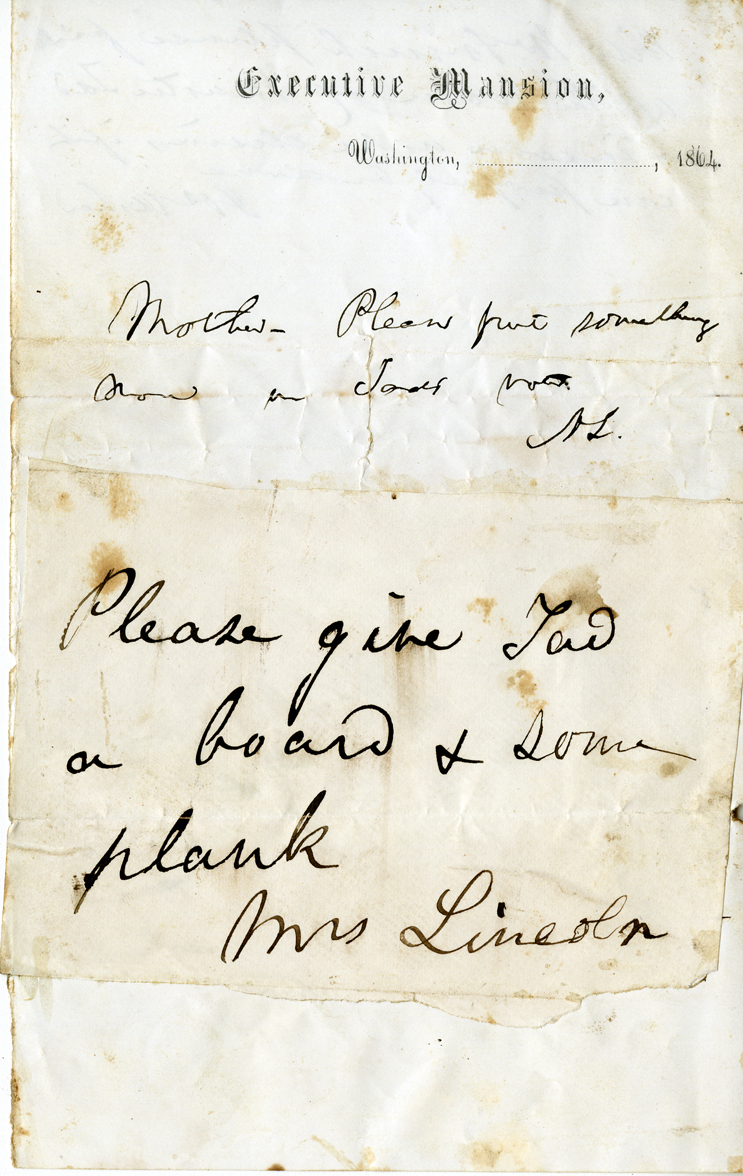 Executive Mansion,
Washington, ...................................., 1864.
Mother— Please put something
more in Tad's
A L.
Please give Tad
a board & some
plank
Mrs Lincoln